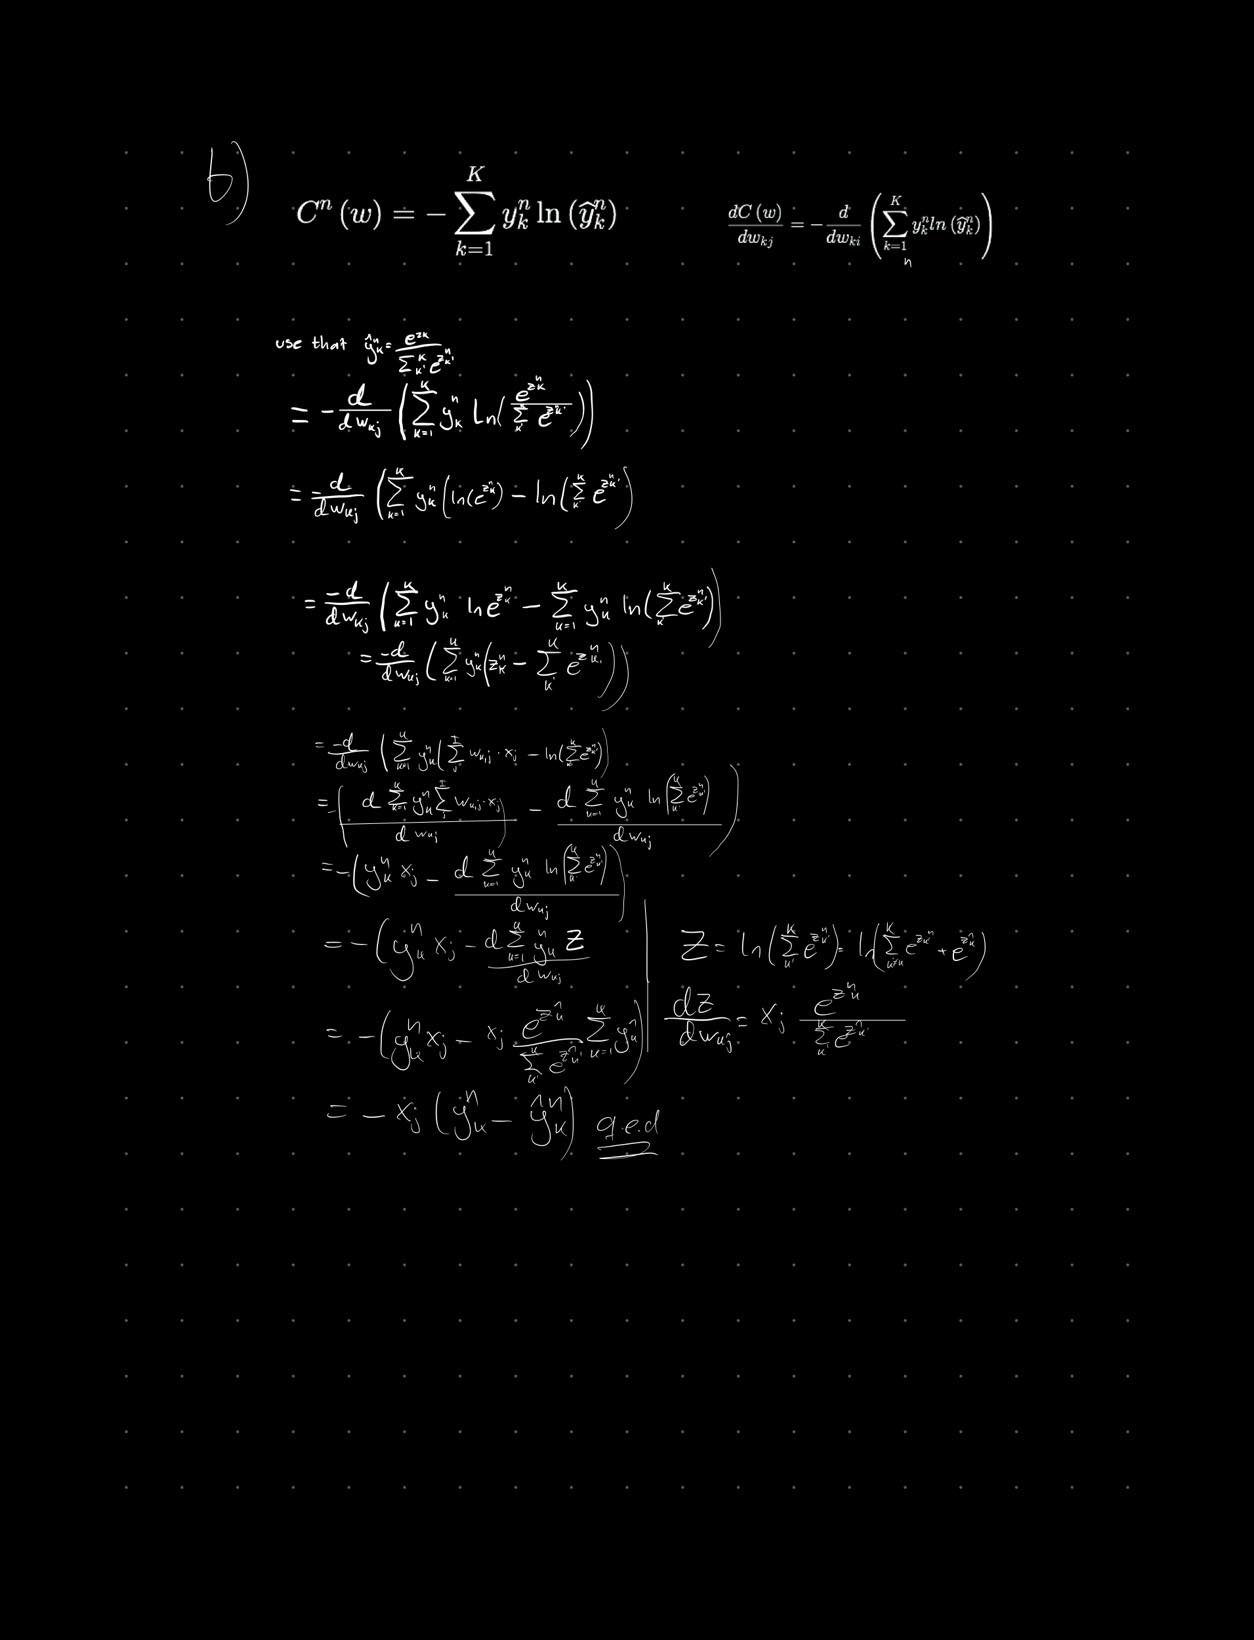 b)
C^n (w) = - \sum_{k=1}^{K} y_k^n ln (\hat{y}_k^n)
dC (w) / dw_{kj} = - d / dw_{ki} ( \sum_{k=1}^{K} y_k^n ln (\hat{y}_k^n) )
n
use that \hat{y}_k^n = e^{z_k} / \sum_{k'}^{K} e^{z_{k'}^n}
= - d / dw_{kj} ( \sum_{k=1}^{K} y_k^n Ln( e^{z_k^n} / \sum_{k'}^{K} e^{z_{k'}^n} ) )
= -d / dw_{kj} ( \sum_{k=1}^{K} y_k^n ( ln(e^{z_k^n}) - ln( \sum_{k'}^{K} e^{z_{k'}^n} )
= -d / dw_{kj} ( \sum_{k=1}^{K} y_k^n ln e^{z_k^n} - \sum_{k=1}^{K} y_k^n ln( \sum_{k'}^{K} e^{z_{k'}^n} ) )
= -d / dw_{kj} ( \sum_{k=1}^{K} y_k^n ( z_k^n - \sum_{k'}^{K} e^{z_{k'}^n} ) )
= -d / dw_{kj} ( \sum_{k=1}^{K} y_k^n ( \sum_{j}^{I} w_{k,j} · x_j - ln( \sum_{k'}^{K} e^{z_{k'}^n} ) )
= - ( d \sum_{k=1}^{K} y_k^n \sum_{j}^{I} w_{k,j} · x_j ) / dw_{kj} - d \sum_{k=1}^{K} y_k^n ln( \sum_{k'}^{K} e^{z_{k'}^n} ) / dw_{kj} )
= - ( y_k^n x_j - d \sum_{k=1}^{K} y_k^n ln( \sum_{k'}^{K} e^{z_{k'}^n} ) / dw_{kj} )
= - ( y_k^n x_j - d \sum_{k=1}^{K} y_k^n Z / dw_{kj}
Z = ln( \sum_{k'}^{K} e^{z_{k'}^n} ) = ln( \sum_{k'≠k}^{K} e^{z_{k'}^n} + e^{z_k^n} )
= - ( y_k^n x_j - x_j e^{z_k^n} / \sum_{k'}^{K} e^{z_{k'}^n} \sum_{k=1}^{K} y_k^n )
dZ / dw_{kj} = x_j e^{z_k^n} / \sum_{k'}^{K} e^{z_{k'}^n}
= - x_j ( y_k^n - \hat{y}_k^n ) q.e.d